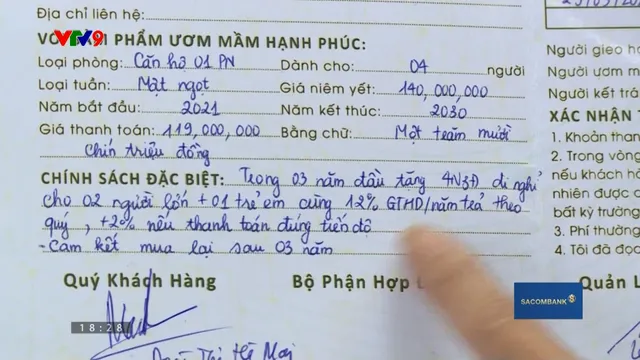 VTV9
Địa chỉ liên hệ:
PHẨM ƯƠM MẦM HẠNH PHÚC:
Loại phòng: Căn hộ 01 PN Dành cho: 04 người
Loại tuần: Mật ngọt Giá niêm yết: 140,000,000
Năm bắt đầu: 2021 Năm kết thúc: 2030
Giá thanh toán: 119,000,000 Bằng chữ: Một trăm mười
chín triệu đồng
CHÍNH SÁCH ĐẶC BIỆT: Trong 03 năm đầu tặng 4N3Đ đi nghỉ
cho 02 người lớn + 01 trẻ em cùng 12% GTHĐ/năm trả theo
quý, +2% nếu thanh toán đúng tiến độ
- Cam kết mua lại sau 03 năm
Quý Khách Hàng Bộ Phận Hợp Quản L
Thị Hà Mai
Người giao h
Người ươm m
Người kết trá
XÁC NHẬN T
1. Khoản than
2. Trong vòng
nếu khách h
nhiên được c
bất kỳ trường
3. Phí thường
4. Tôi đã đọc
SACOMBANK
18:28